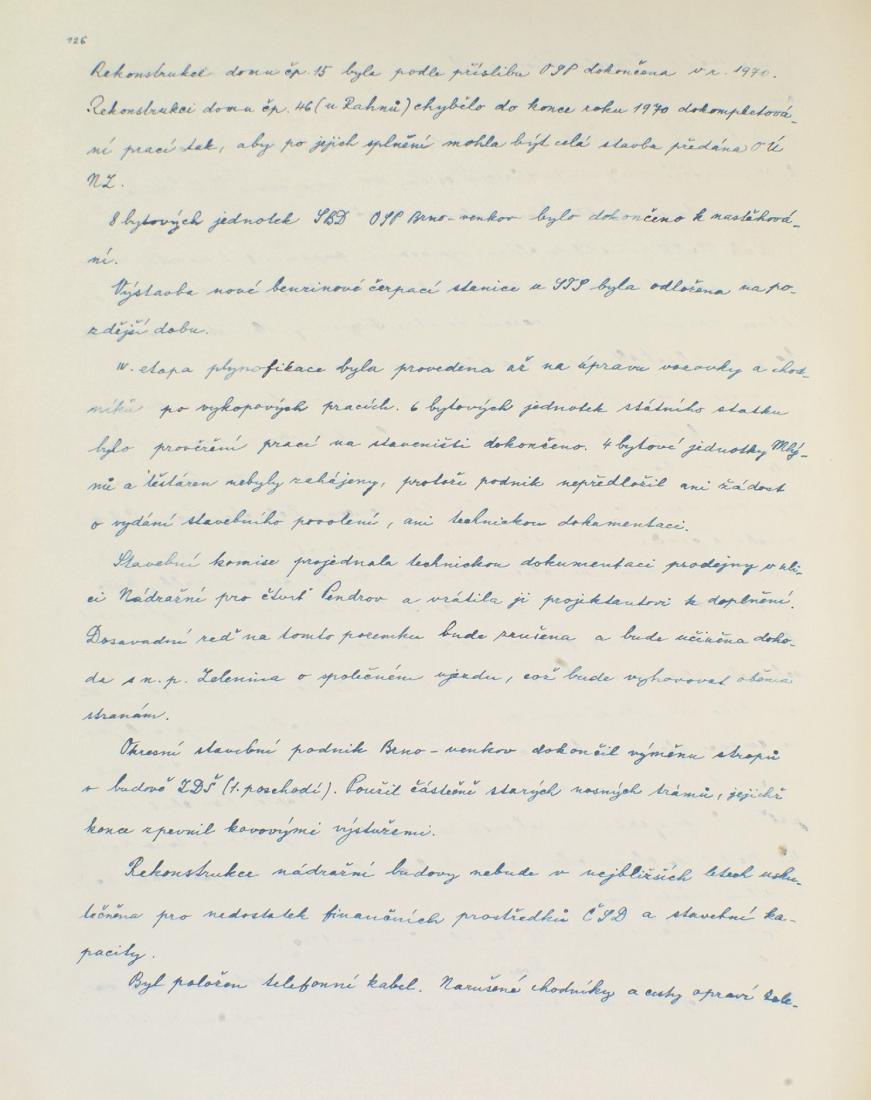 126
Rekonstrukce domu čp. 15 byla podle příslibu OSP dokončena v r. 1970.
Rekonstrukci domu čp. 46 (u Rahnů) chybělo do konce roku 1970 dokompletová-
ní prací tak, aby po jejich splnění mohla být celá stavba předána OÚ
NZ.
8 bytových jednotek SBD OSP Brno-venkov bylo dokončeno k nastěhová-
ní.
Výstavba nové benzinové čerpací stanice u STS byla odložena na po-
zdější dobu.
IV. etapa plynofikace byla provedena až na úpravu vozovky a chod-
níků po výkopových pracích. 6 bytových jednotek státního statku
bylo prověření prací na staveništi dokončeno. 4 bytové jednotky Mlý-
nů a těstáren nebyly zahájeny, protože podnik nepředložil ani žádost
o vydání stavebního povolení, ani technickou dokumentaci.
Stavební komise projednala technickou dokumentaci prodejny v uli-
ci Nádražní pro čtvrť Pendrov a vrátila ji projektantovi k doplnění.
Dosavadní zeď na tomto pozemku bude zrušena a bude učiněna doho-
da s n. p. Zelenina o společném vjezdu, což bude vyhovovat oběma
stranám.
Okresní stavební podnik Brno-venkov dokončil výměnu stropů
v budově ZDŠ (1. poschodí). Použil částečně starých nosných trámů, jejichž
konce zpevnil kovovými výztužemi.
Rekonstrukce nádražní budovy nebude v nejbližších letech usku-
tečněna pro nedostatek finančních prostředků ČSD a stavební ka-
pacity.
Byl položen telefonní kabel. Narušené chodníky a cesty opraví tele-